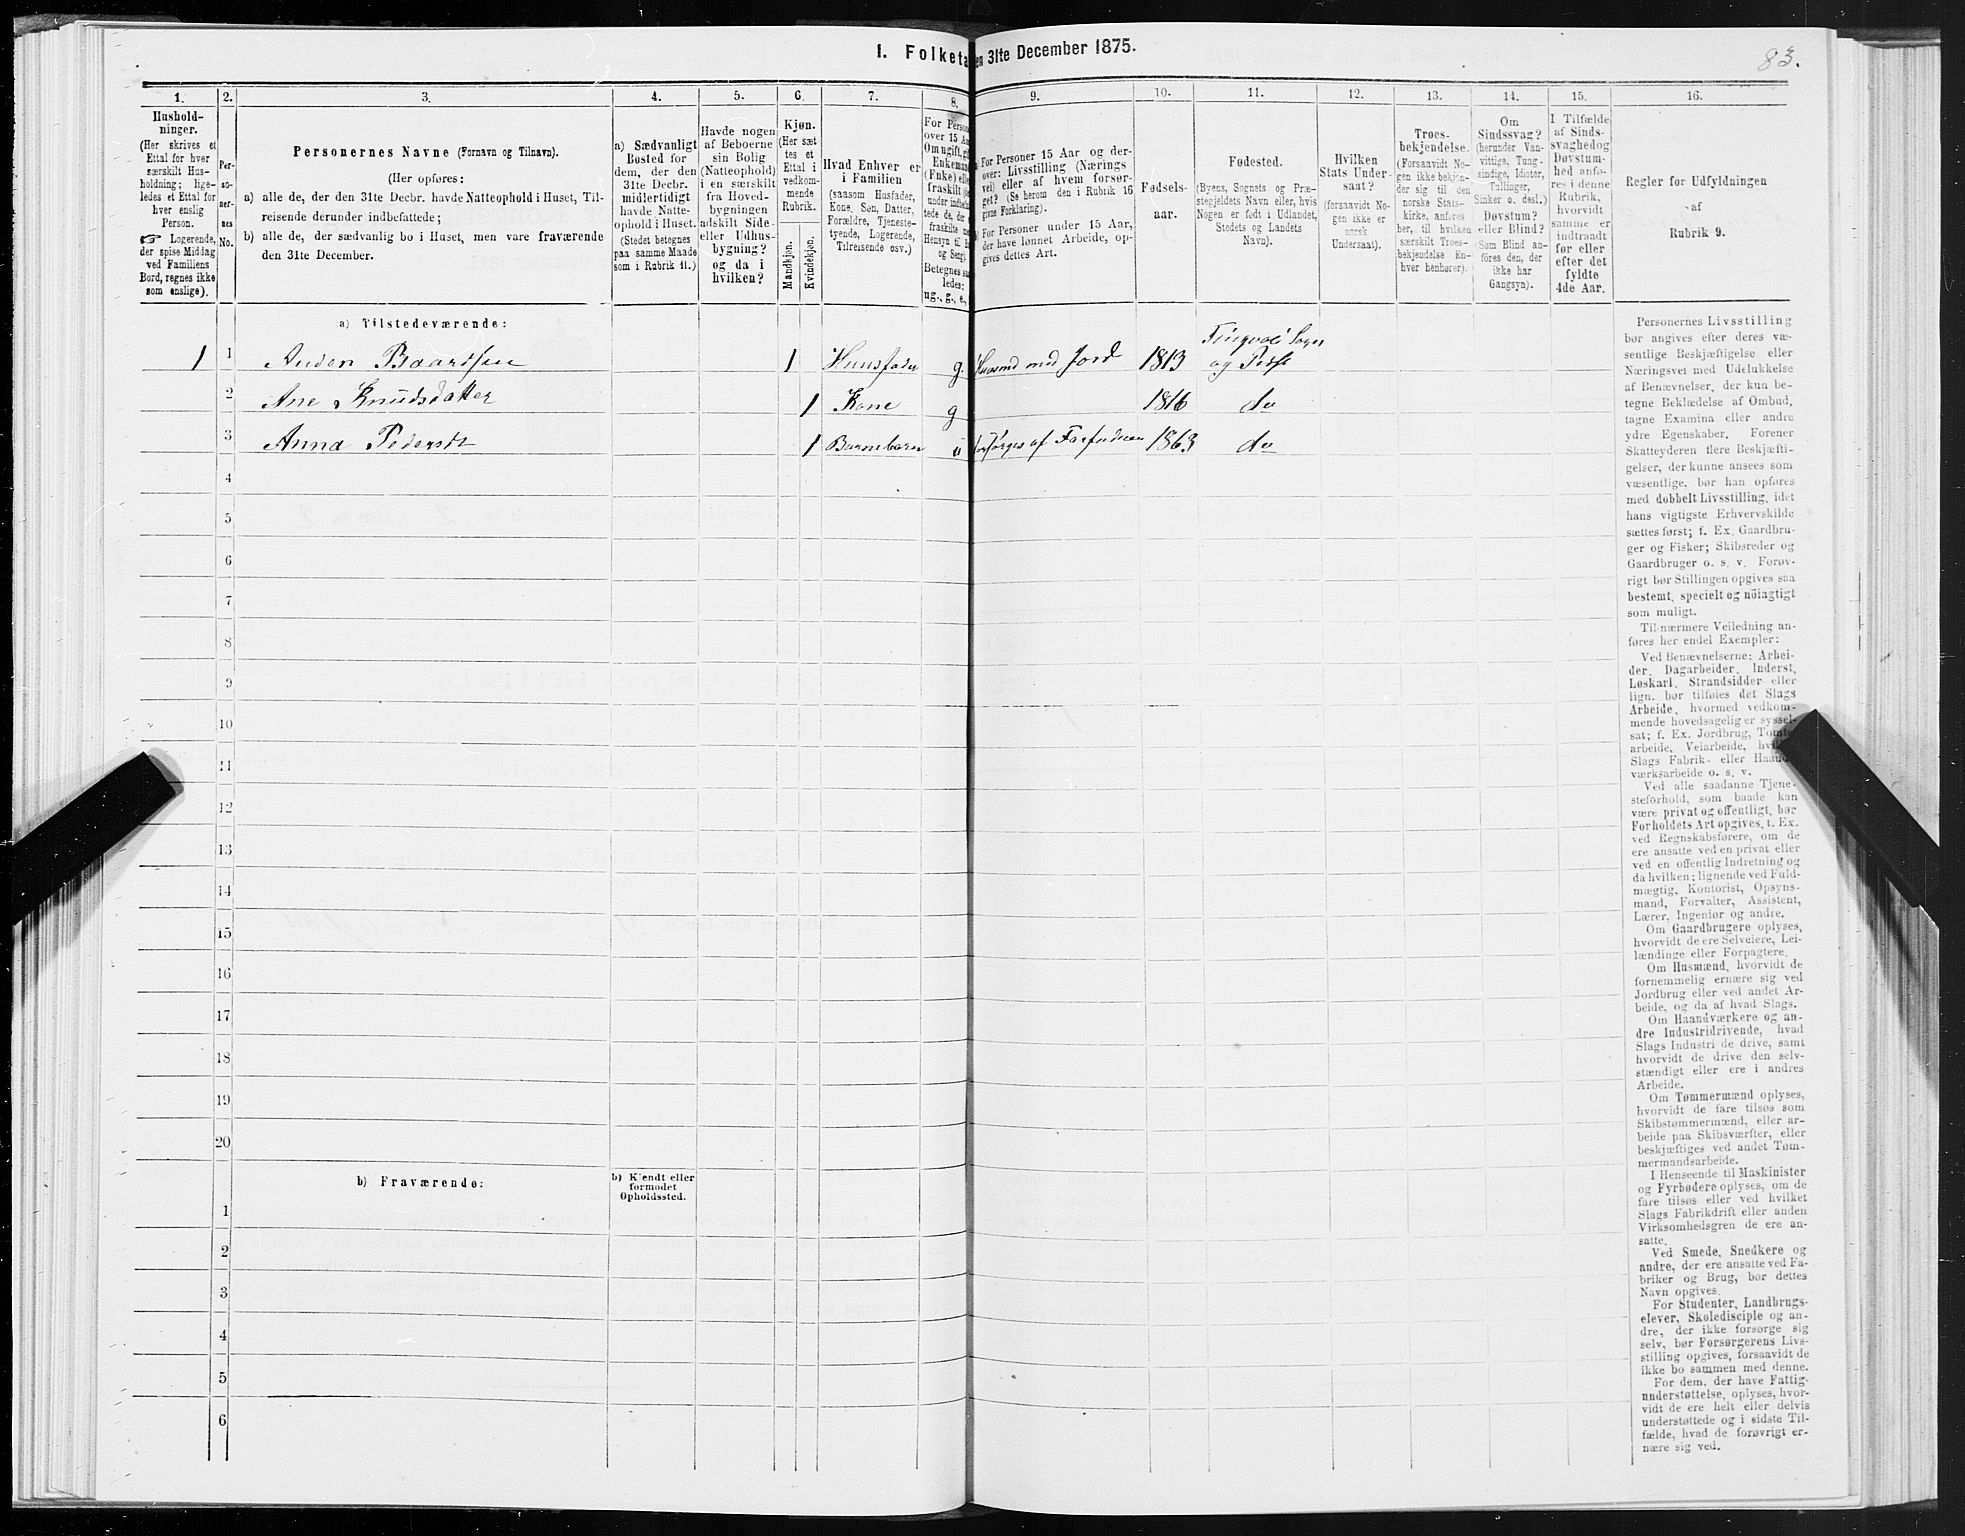 1. Folketa
en 31te December 1875.
83.
1.
2.
3.
4.
5.
6.
7.
8.
9.
10.
11.
12.
13.
14.
15.
16.
Hushold-
ninger.
(Her skrives et
Ettal for hver
særskilt Hus-
holdning; lige-
ledes et Ettal for
hver enslig
Person.
☞ Logerende,
der spise Middag
ved Familiens
Bord, regnes ikke
som enslige).
Per-
so-
ner-
nes
No.
Personernes Navne (Fornavn og Tilnavn).
(Her opføres:
a) alle de, der den 31te Decbr. havde Natteophold i Huset, Til-
reisende derunder indbefattede;
b) alle de, der sædvanlig bo i Huset, men vare fraværende
den 31te December.
a) Sædvanligt
Bosted for
dem, der den
31te Decbr.
midlertidigt
havde Natte-
ophold i Huset.
(Stedet betegnes
paa samme Maade
som i Rubrik 11.)
Havde nogen
af Beboerne
sin Bolig
(Natteophold)
i en særskilt
fra Hoved-
bygningen
adskilt Side-
eller Udhus-
bygning?
og da i
hvilken?
Kjøn.
(Her sæt-
tes et
Ettal i
vedkom-
mende
Rubrik.
Mandkjøn.
Kvindekjøn.
Hvad Enhver er
i Familien
(saasom Husfader,
Kone, Søn, Datter,
Forældre, Tjeneste-
tyende, Logerende,
Tilreisende osv.)
For Person
over 15 Aa
Om ugift, gi
Enkeman
(Enke) elle
fraskilt (de
under indbe
tede de, der
fraskilte me
Hensyn til b
og Seng).
Betegnes saa
ledes:
ug., g., e.,
a) For Personer 15 Aar og der-
over: Livsstilling (Nærings-
vei) eller af hvem forsør-
get? (Se herom den i Rubrik 16
givne Forklaring).
b) For Personer under 15 Aar,
der have lønnet Arbeide, op-
gives dettes Art.
Fødsels-
aar.
Fødested.
(Byens, Sognets og Præ-
stegjeldets Navn eller, hvis
Nogen er født i Udlandet,
Stedets og Landets
Navn).
Hvilken
Stats Under-
saat?
(forsaavidt No-
gen ikke er
norsk
Undersaat).
Troes-
bekjendelse.
(Forsaavidt No-
gen ikke bekjen-
der sig til den
norske Stats-
kirke, anføres
her, til hvilken
særskilt Troes-
bekjendelse En-
hver henhører).
Om
Sindssvag?
(herunder Van-
vittige, Tung-
sindige, Idioter,
Tullinger,
Sinker o. desl.)
Døvstum?
eller Blind?
(Som Blind an-
føres den, der
ikke har
Gangsyn).
I Tilfælde
af Sinds-
svaghed og
Døvstum-
hed anfø-
res i denne
Rubrik,
hvorvidt
samme er
indtraadt
før eller
efter det
fyldte
4de Aar.
Regler for Udfyldningen
af
Rubrik 9.
a) Tilstedeværende:
1 1 Anders Baardsen 1 Huusfader g. Huusmd med Jord 1813 Tingvol Sogn
og Præst
2 Ane Knudsdatter 1 Kone g 1816 do
3 Anna Pedersdt 1 Barnebarn u forsørges af Farfaderen 1863 do
4
5
6
7
8
9
10
11
12
13
14
15
16
17
18
19
20
b) Fraværende:
b) Kjendt eller
formodet
Opholdssted.
1
2
3
4
5
6
Personernes Livsstilling
bør angives efter deres væ-
sentlige Beskjæftigelse eller
Næringsvei med Udelukkelse
af Benævnelser, der kun be-
tegne Beklædelse af Ombud,
tagne Examina eller andre
ydre Egenskaber. Forener
Skatteyderen flere Beskjæfti-
gelser, der kunne ansees som
væsentlige, bør han opføres
med dobbelt Livsstilling, idet
hans vigtigste Erhvervskilde
sættes først; f. Ex. Gaardbru-
ger og Fisker; Skibsreder og
Gaardbruger o. s. v. Forøv-
rigt bør Stillingen opgives saa
bestemt, specielt og nöiagtigt
som muligt.
Til nærmere Veiledning an-
føres her endel Exempler:
Ved Benævnelserne: Arbei-
der, Dagarbeider, Inderst,
Løskarl, Strandsidder eller
lign. bør tilføies det Slags
Arbeide, hvormed vedkom-
mende hovedsagelig er syssel-
sat; f. Ex. Jordbrug, Tomte-
arbeide, Veiarbeide, hvil
Slags Fabrik- eller Haand-
værksarbeide o. s. v.
Ved alle saadanne Tjene-
steforhold, som baade kan
være privat og offentligt, bør
Forholdets Art opgives, t. Ex.
ved Regnskabsførere, om de
ere ansatte ved en privat eller
ved en offentlig Indretning og
da hvilken; lignende ved Fuld-
mægtig, Kontorist, Opsyns-
mand, Forvalter, Assistent,
Lærer, Ingeniør og andre.
Om Gaardbrugere oplyses,
hvorvidt de ere Selveiere, Lei-
lændinge eller Forpagtere.
Om Husmænd, hvorvidt de
fornemmelig ernære sig ved
Jordbrug eller ved andet Ar-
beide, og da af hvad Slags.
Om Haandværkere og an-
dre Industridrivende, hvad
Slags Industri de drive, samt
hvorvidt de drive den selv-
stændigt eller ere i andres
Arbeide.
Om Tømmermænd oplyses,
hvorvidt de fare tilsøs som
Skibstømmermænd, eller ar-
beide paa Skibsværfter, eller
beskjæftiges ved andet Tøm-
mermandsarbeide.
I Henseende til Maskinister
og Fyrbødere oplyses, om de
fare tilsøs eller ved hvilket
Slags Fabrikdrift eller anden
Virksomhedsgren de ere an-
satte.
Ved Smede, Snedkere og
andre, der ere ansatte ved Fa-
briker og Brug, bør dettes
Navn opgives.
For Studenter, Landbrugs-
elever, Skoledisciple og an-
dre, der ikke forsørge sig
selv, bør Forsørgerens Livs-
stilling opgives, forsaavidt de
ikke bo sammen med denne.
For dem, der have Fattig-
understøttelse, oplyses, hvor-
vidt de ere helt eller delvis
understøttede og i sidste Til-
fælde, hvad de forøvrigt er-
nære sig ved.